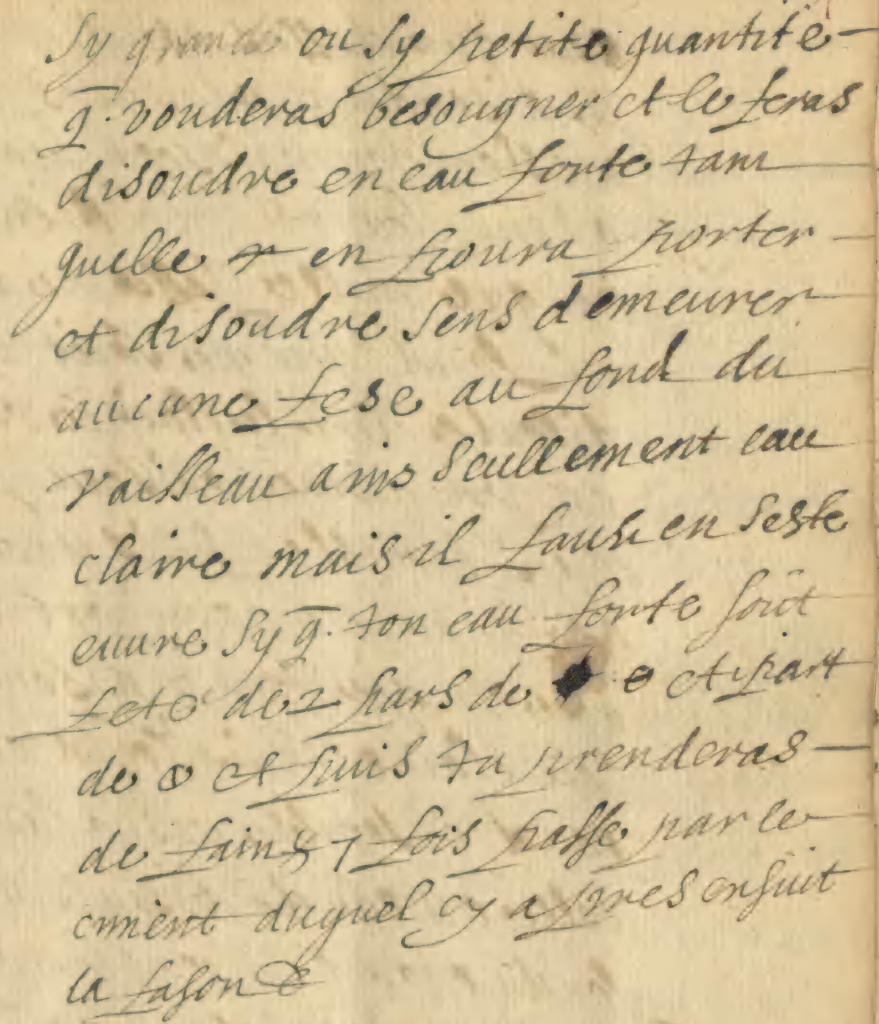 sy grande ou sy petite quantite
q̄. vouderas besougner et le feras
disoudre en eau forte tant
quelle en poura porter
et disoudre sens demeurer
aucune fese au fond du
vaisseau ains seullement eau
claire mais il fault en seste
euure sy q̄. ton eau forte soit
fete de 2 pars de et 1 part
de et puis tu prenderas
de 7 fois passe par le
ciment duquel cy apres ensuit
la fason